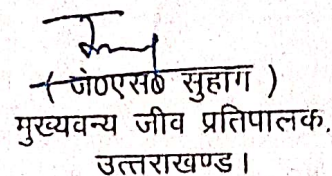 (जे०एस० सुहाग )
मुख्यवन्य जीव प्रतिपालक,
उत्तराखण्ड।